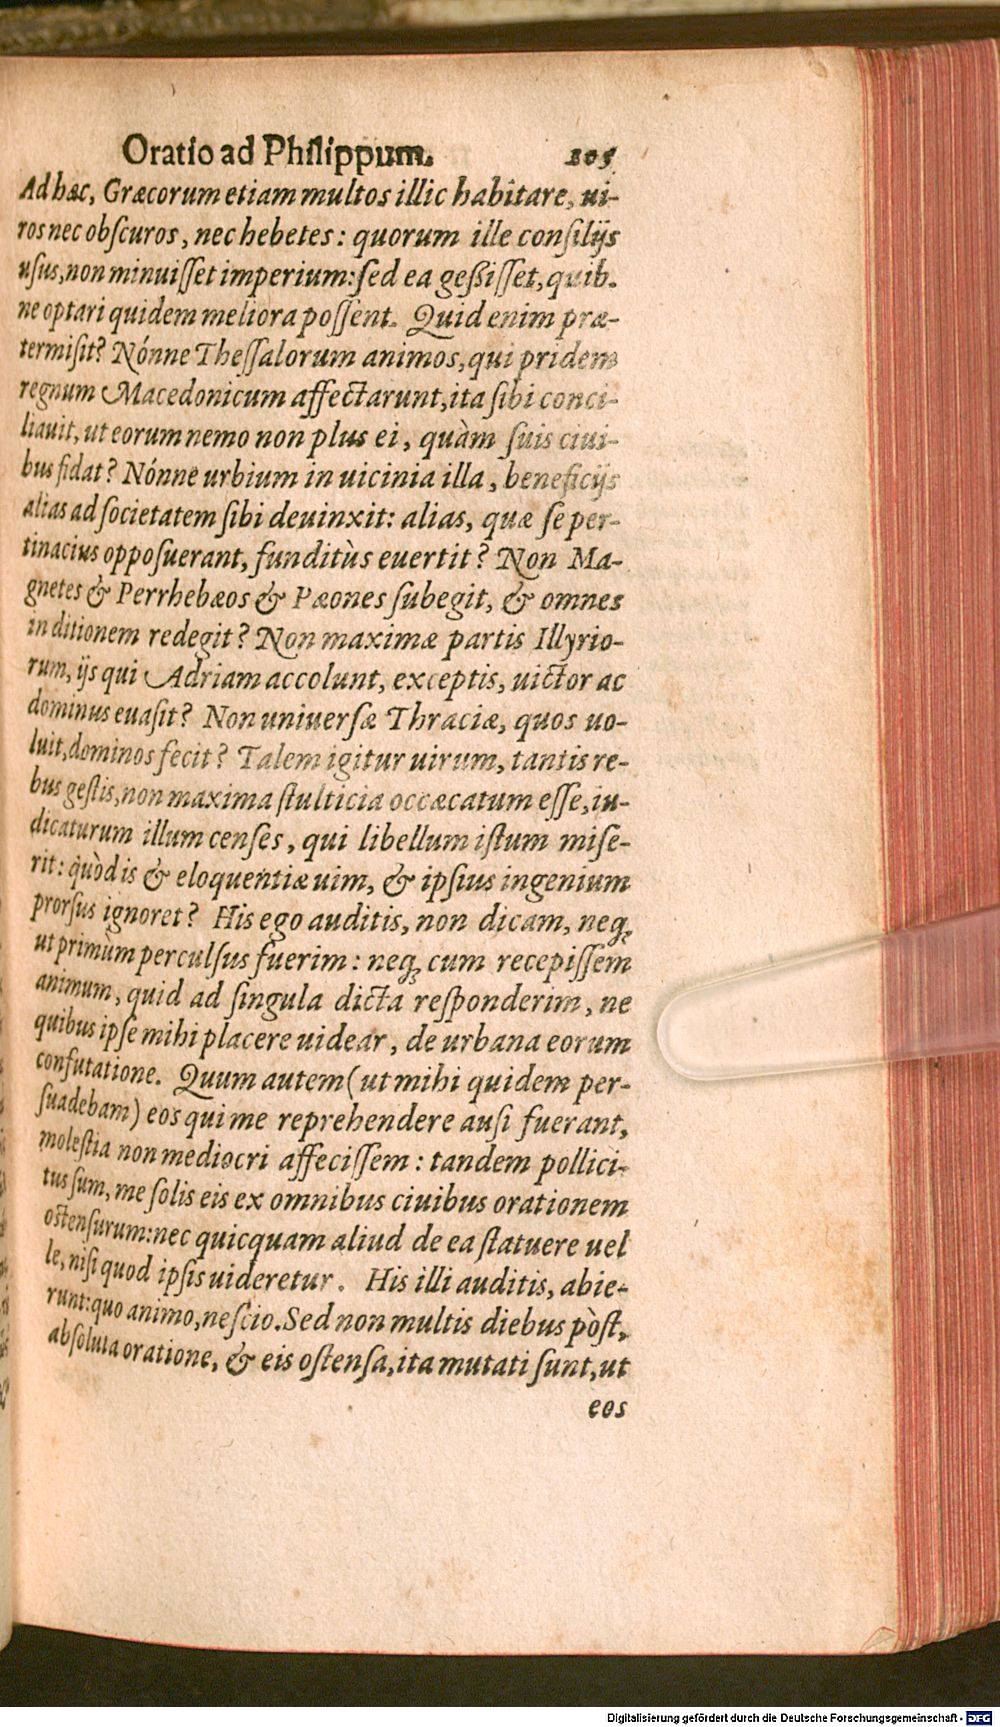 Oratio ad Philippum. 205
Ad hæc, Græcorum etiam multos illic habitare, ui-
ros nec obſcuros, nec hebetes: quorum ille conſilijs
uſus, non minuiſſet imperium: ſed ea geßiſſet, quib.
ne optari quidem meliora poſſent. Quid enim præ-
termiſit? Nónne Theſſalorum animos, qui pridem
regnum Macedonicum affectarunt, ita ſibi conci-
liauit, ut eorum nemo non plus ei, quàm ſuis ciui-
bus fidat? Nónne urbium in uicinia illa, beneficijs
alias ad ſocietatem ſibi deuinxit: alias, quæ ſe per-
tinacius oppoſuerant, funditùs euertit? Non Ma-
gnetes & Perrhebæos & Pæones ſubegit, & omnes
in ditionem redegit? Non maximæ partis Illyrio-
rum, ijs qui Adriam accolunt, exceptis, uictor ac
dominus euaſit? Non uniuerſæ Thraciæ, quos uo-
luit, dominos fecit? Talem igitur uirum, tantis re-
bus geſtis, non maxima ſtulticia occæcatum eſſe, iu-
dicaturum illum cenſes, qui libellum iſtum miſe-
rit: quòd is & eloquentiæ uim, & ipſius ingenium
prorſus ignoret? His ego auditis, non dicam, neq;
ut primùm perculſus fuerim: neq; cum recepiſſem
animum, quid ad ſingula dicta reſponderim, ne
quibus ipſe mihi placere uidear, de urbana eorum
confutatione. Quum autem (ut mihi quidem per-
ſuadebam) eos qui me reprehendere auſi fuerant,
moleſtia non mediocri affeciſſem: tandem pollici-
tus ſum, me ſolis eis ex omnibus ciuibus orationem
oſtenſurum: nec quicquam aliud de ea ſtatuere uel
le, niſi quod ipſis uideretur. His illi auditis, abie-
runt: quo animo, neſcio. Sed non multis diebus pòſt,
abſoluta oratione, & eis oſtenſa, ita mutati ſunt, ut
eos
Digitalisierung gefördert durch die Deutsche Forschungsgemeinschaft - DFG